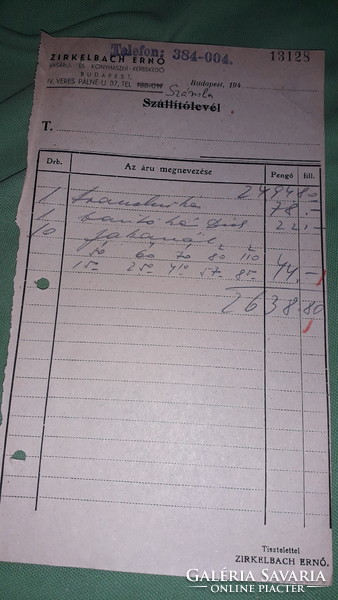 Telefon: 384-004.
13128
ZIRKELBACH ERNŐ
VASÁRU- ÉS KONYHASZER-KERESKEDŐ
BUDAPEST,
IV, VERES PÁLNÉ-U. 37, TEL.
Budapest, 194
Számla
Szállítólevél
T.
Drb. Az áru megnevezése Pengő fill.
2494 80
1 78.-
1 221.-
10 fakanál
50 60 70 80 110
15.- 250 410 57.- 85.- 44.-
2638.80
Tisztelettel
ZIRKELBACH ERNŐ.
GALÉRIA SAVARIA
ONLINE PIACTÉR